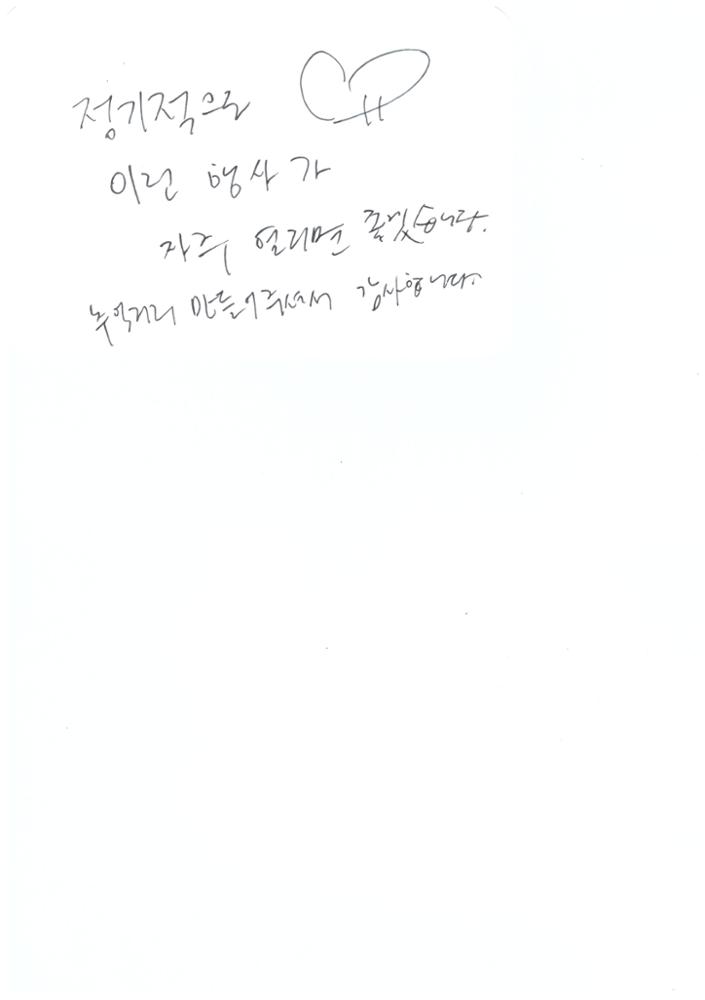 정기적으로
이런 행사가
자주 열리면 좋겠습니다.
추억거리 만들어주셔서 감사합니다.